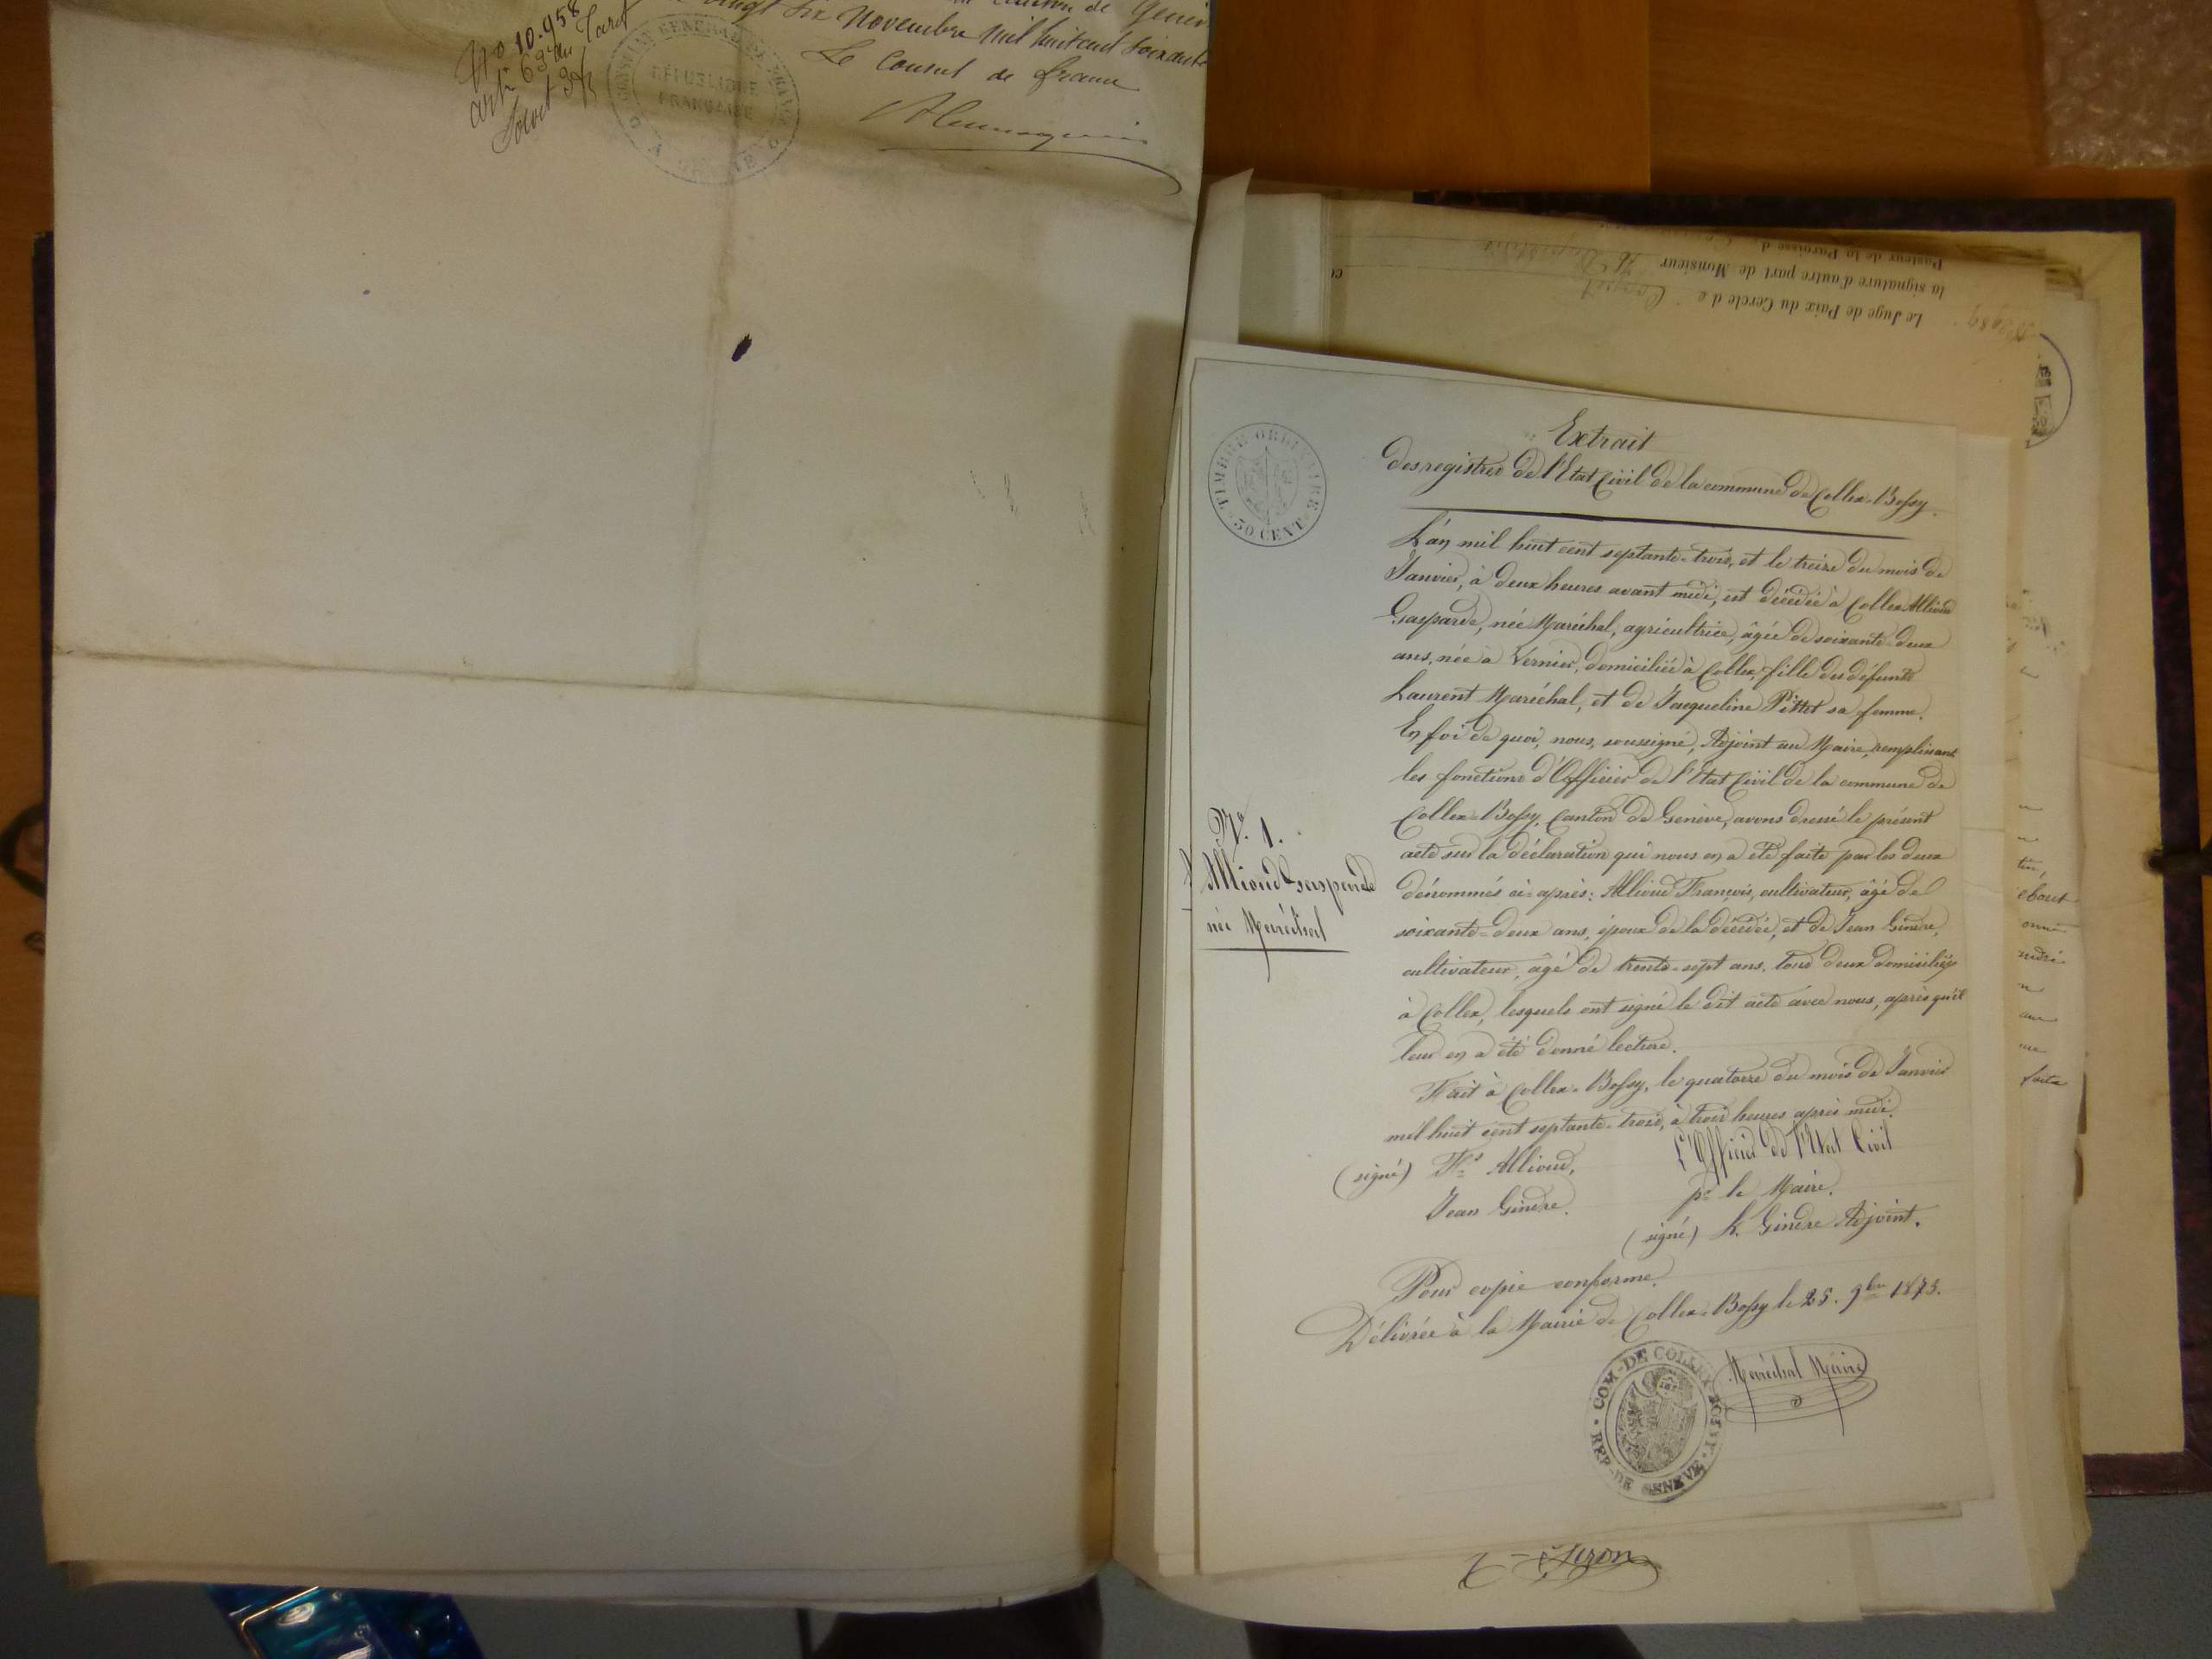 No 10.958
artr 63 du Tarif
vingt six Novembre mil huit cent soixante
Le Consul de france
CONSULAT GÉNÉRAL DE FRANCE
RÉPUBLIQUE
FRANÇAISE
Le Juge de Paix du Cercle de Coppet
la signature d'autre part de Monsieur
Pasteur de la Paroisse d
TIMBRE ORDINAIRE
50 CENT
Extrait
des registres de l'Etat Civil de la commune de Collex-Bossy.
L'an mil huit cent septante-trois, et le treize du mois de
Janvier, à deux heures avant midi, est décédée à Collex Allioud
Gasparde, née Maréchal, agricultrice, âgée de soixante-deux
ans, née à Vernier, domiciliée à Collex, fille des défunts
Laurent Maréchal, et de Jaqueline Pittet sa femme.
En foi de quoi, nous, soussigné, Adjoint au Maire, remplissant
les fonctions d'Officier de l'Etat Civil de la commune de
Collex-Bossy, Canton de Genève, avons dressé le présent
acte sur la déclaration qui nous en a été faite par les deux
dénommés ci-après: Allioud François, cultivateur, âgé de
soixante-deux ans, époux de la décédée, et de Jean Gindre,
cultivateur, âgé de trente-sept ans, tous deux domiciliés
à Collex, lesquels ont signé le dit acte avec nous, après qu'il
leur en a été donné lecture.
Fait à Collex-Bossy, le quatorze du mois de Janvier
mil huit cent septante-trois, à trois heures après midi.
N° 1.
Allioud Gasparde
née Maréchal
L'Officier de l'Etat Civil
(signé) Fs Allioud,
pr le Maire.
Jean Gindre.
(signé) K. Gindre Adjoint.
Pour copie conforme.
Délivrée à la Mairie de Collex-Bossy le 25. 9bre 1875.
Maréchal Maire
COM. DE COLLEX-BOSSY.
REP. DE GENEVE